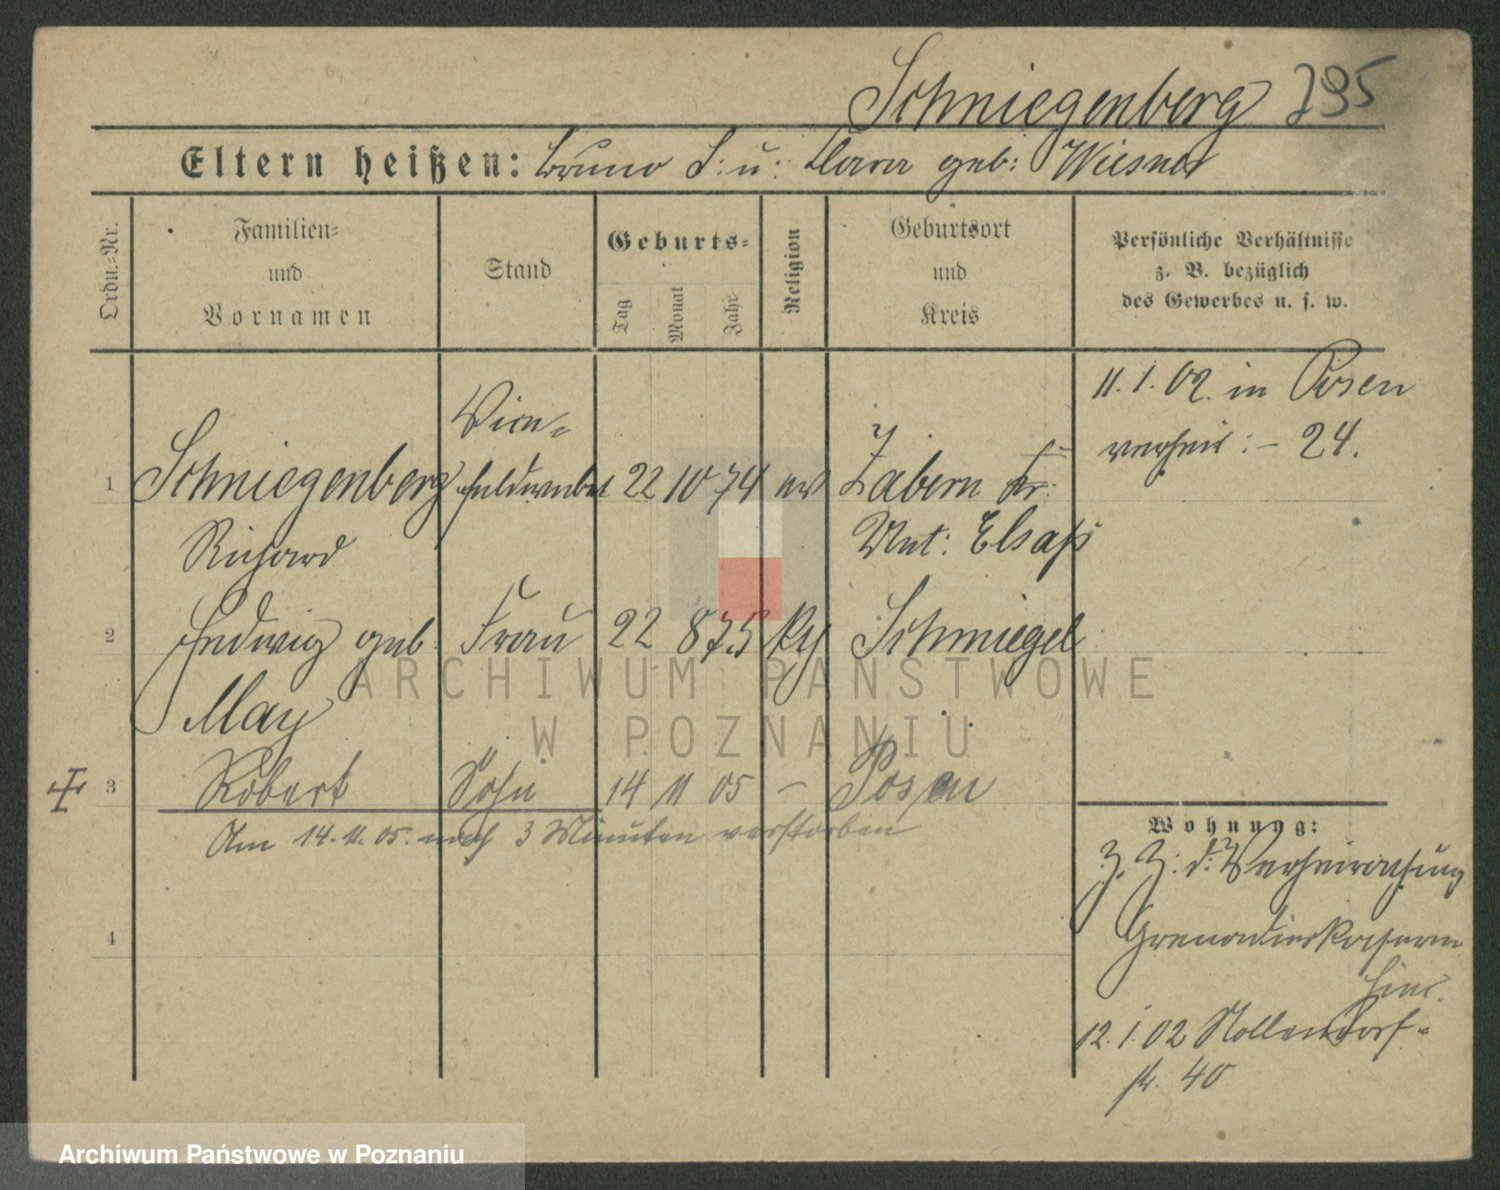 Schmiegenberg 795
Eltern heißen: Bruno S. u: Klara geb: Wiesner
Ordn.-Nr.
Familien-
und
Vornamen
Stand
Geburts-
Tag
Monat
Jahr
Religion
Geburtsort
und
Kreis
Persönliche Verhältnisse
z. B. bezüglich
des Gewerbes u. s. w.
11. 1. 02. in Posen
verheir: - 24.
1 Schmiegenberg Vice-
feldwebel 22 10 74 ev Zabern Kr:
Richard Unt: Elsaß
2 Hedwig geb. Frau 22 8 75 kth Schmiegel
May
3 Robert Sohn 14 11 05 - Posen
Am 14. 11. 05. nach 3 Minuten verstorben
4
Wohnung:
z. Z. d. Verheirathung
Grenadierkaserne
hier.
12. 1 02 Nollendorf-
str. 40
ARCHIWUM PAŃSTWOWE
W POZNANIU
Archiwum Państwowe w Poznaniu